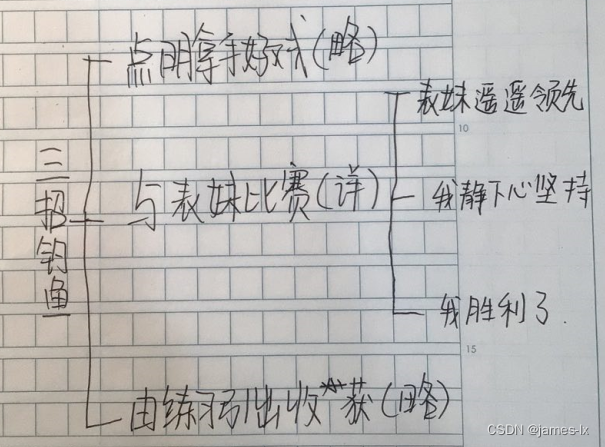 三招钓鱼
点明拿手好戏(略)
与表妹比赛(详)
表妹遥遥领先
10
我静下心坚持
我胜利了.
15
由练习引出收获(略)
CSDN @james-lx